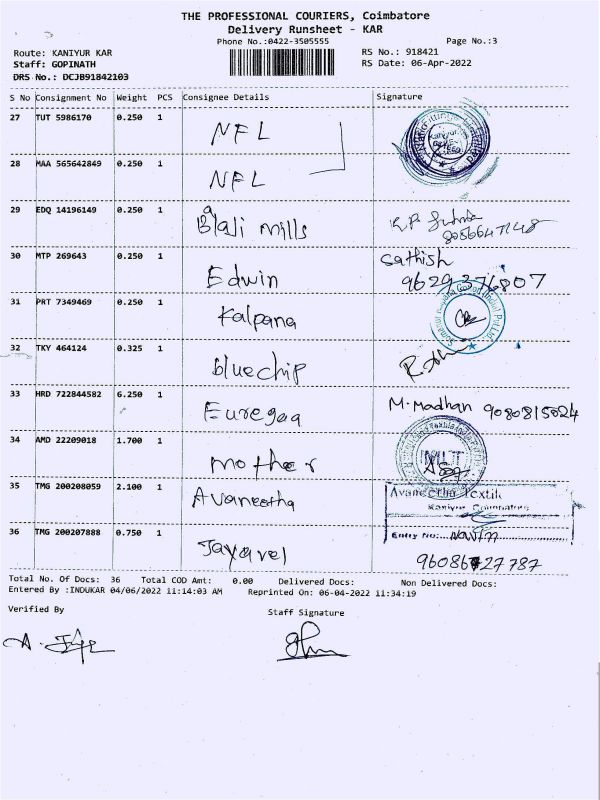 THE PROFESSIONAL COURIERS, Coimbatore
Delivery Runsheet - KAR
Phone No.:0422-3505555
Page No.:3
Route: KANIYUR KAR
RS No.: 918421
Staff: GOPINATH
RS Date: 06-Apr-2022
DRS No.: DCJB91842103
S No Consignment No Weight PCS Consignee Details Signature
27 TUT 5986170 0.250 1 NFL
28 MAA 565642849 0.250 1 NFL
29 EDQ 14196149 0.250 1 Balaji mills
30 MTP 269643 0.250 1 Edwin Sathish
9629376807
31 PRT 7349469 0.250 1 Kalpana
32 TKY 464124 0.325 1 bluechip
33 HRD 722844582 6.250 1 Euregaa M. Madhan 9080815024
34 AMD 22209018 1.700 1 mother
35 TMG 200208059 2.100 1 Avaneetha Avaneetha Textile
Kaniyur Coimbatore
Entry No: Navin
36 TMG 200207888 0.750 1 Jayavel
Total No. Of Docs: 36 Total COD Amt: 0.00 Delivered Docs: Non Delivered Docs:
Entered By :INDUKAR 04/06/2022 11:14:03 AM Reprinted On: 06-04-2022 11:34:19
Verified By Staff Signature